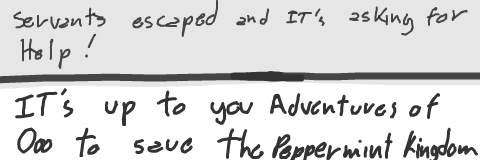 servants escaped and IT's asking for
Help!
IT's up to you Adventures of
Ooo to save the Peppermint Kingdom